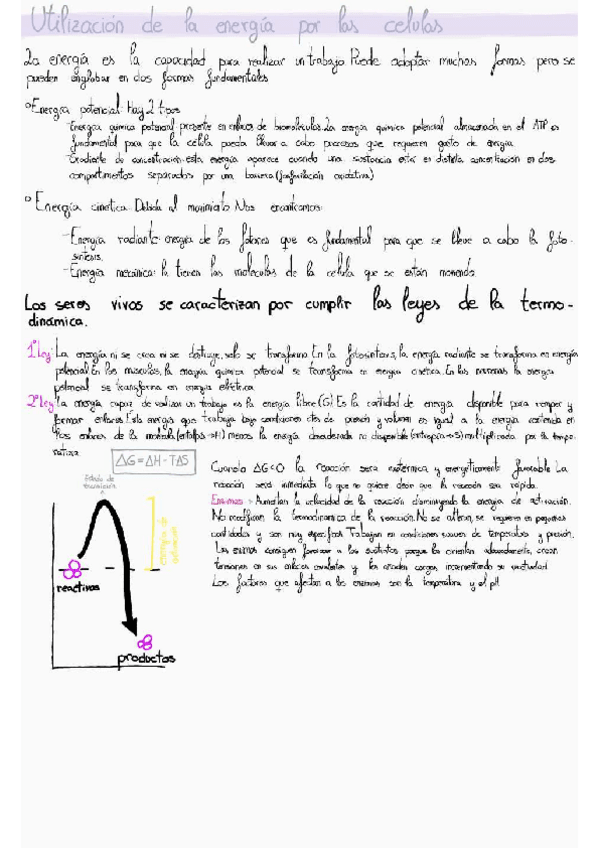 Utilización de la energía por las celulas
La energía es la capacidad para realizar un trabajo. Puede adoptar muchas formas pero se
pueden englobar en dos formas fundamentales
°Energía potencial: Hay 2 tipos
-Energía química potencial: presente en enlaces de biomoléculas. La energía química potencial almacenada en el ATP es
fundamental para que la celula pueda llevar a cabo procesos que requieren gasto de energía
-Gradiente de concentración: esta energía aparece cuando una sustancia está en distinta concentración en dos
compartimentos separados por una barrera (fosforilación oxidativa)
°Energía cinética: Debida al movimiento. Nos encontramos:
-Energía radiante: energía de los fotones que es fundamental para que se lleve a cabo la foto-
síntesis.
-Energía mecánica: la tienen las moleculas de la celula que se están moviendo.
Los seres vivos se caracterizan por cumplir las leyes de la termo-
dinámica.
1ªLey: La energía ni se crea ni se destruye, solo se transforma. En la fotosíntesis, la energía radiante se transforma en energía
potencial. En los músculos, la energía química potencial se transforma en energía cinética. En las neuronas la energía
potencial se transforma en energía eléctrica.
2ªLey: La energía capaz de realizar un trabajo es la energía libre (G). Es la cantidad de energía disponible para romper y
formar enlaces. Esta energía que trabaja bajo condiciones ctes de presión y volumen es igual a la energía contenida en
los enlaces de la molécula (entalpía→H) menos la energía desordenada no disponible (entropía→S) multiplicada por la tempe-
ratura.
ΔG=ΔH-TΔS
Cuando ΔG<0 la reacción será exotérmica y energéticamente favorable. La
reacción será inmediata lo que no quiere decir que la reacción sea rápida.
Enzimas → Aumentan la velocidad de la reacción disminuyendo la energía de activación.
No modifican la termodinámica de la reacción. No se alteran, se requieren en pequeñas
cantidades y son muy específicas. Trabajan en condiciones suaves de temperatura y presión.
Las enzimas consiguen favorecer a los sustratos porque los orientan adecuadamente, crean
tensiones en sus enlaces covalentes y les añaden cargas, incrementando su reactividad.
Los factores que afectan a las enzimas son la temperatura y el pH.
Estado de
transición
energía de
activación
reactivos
productos